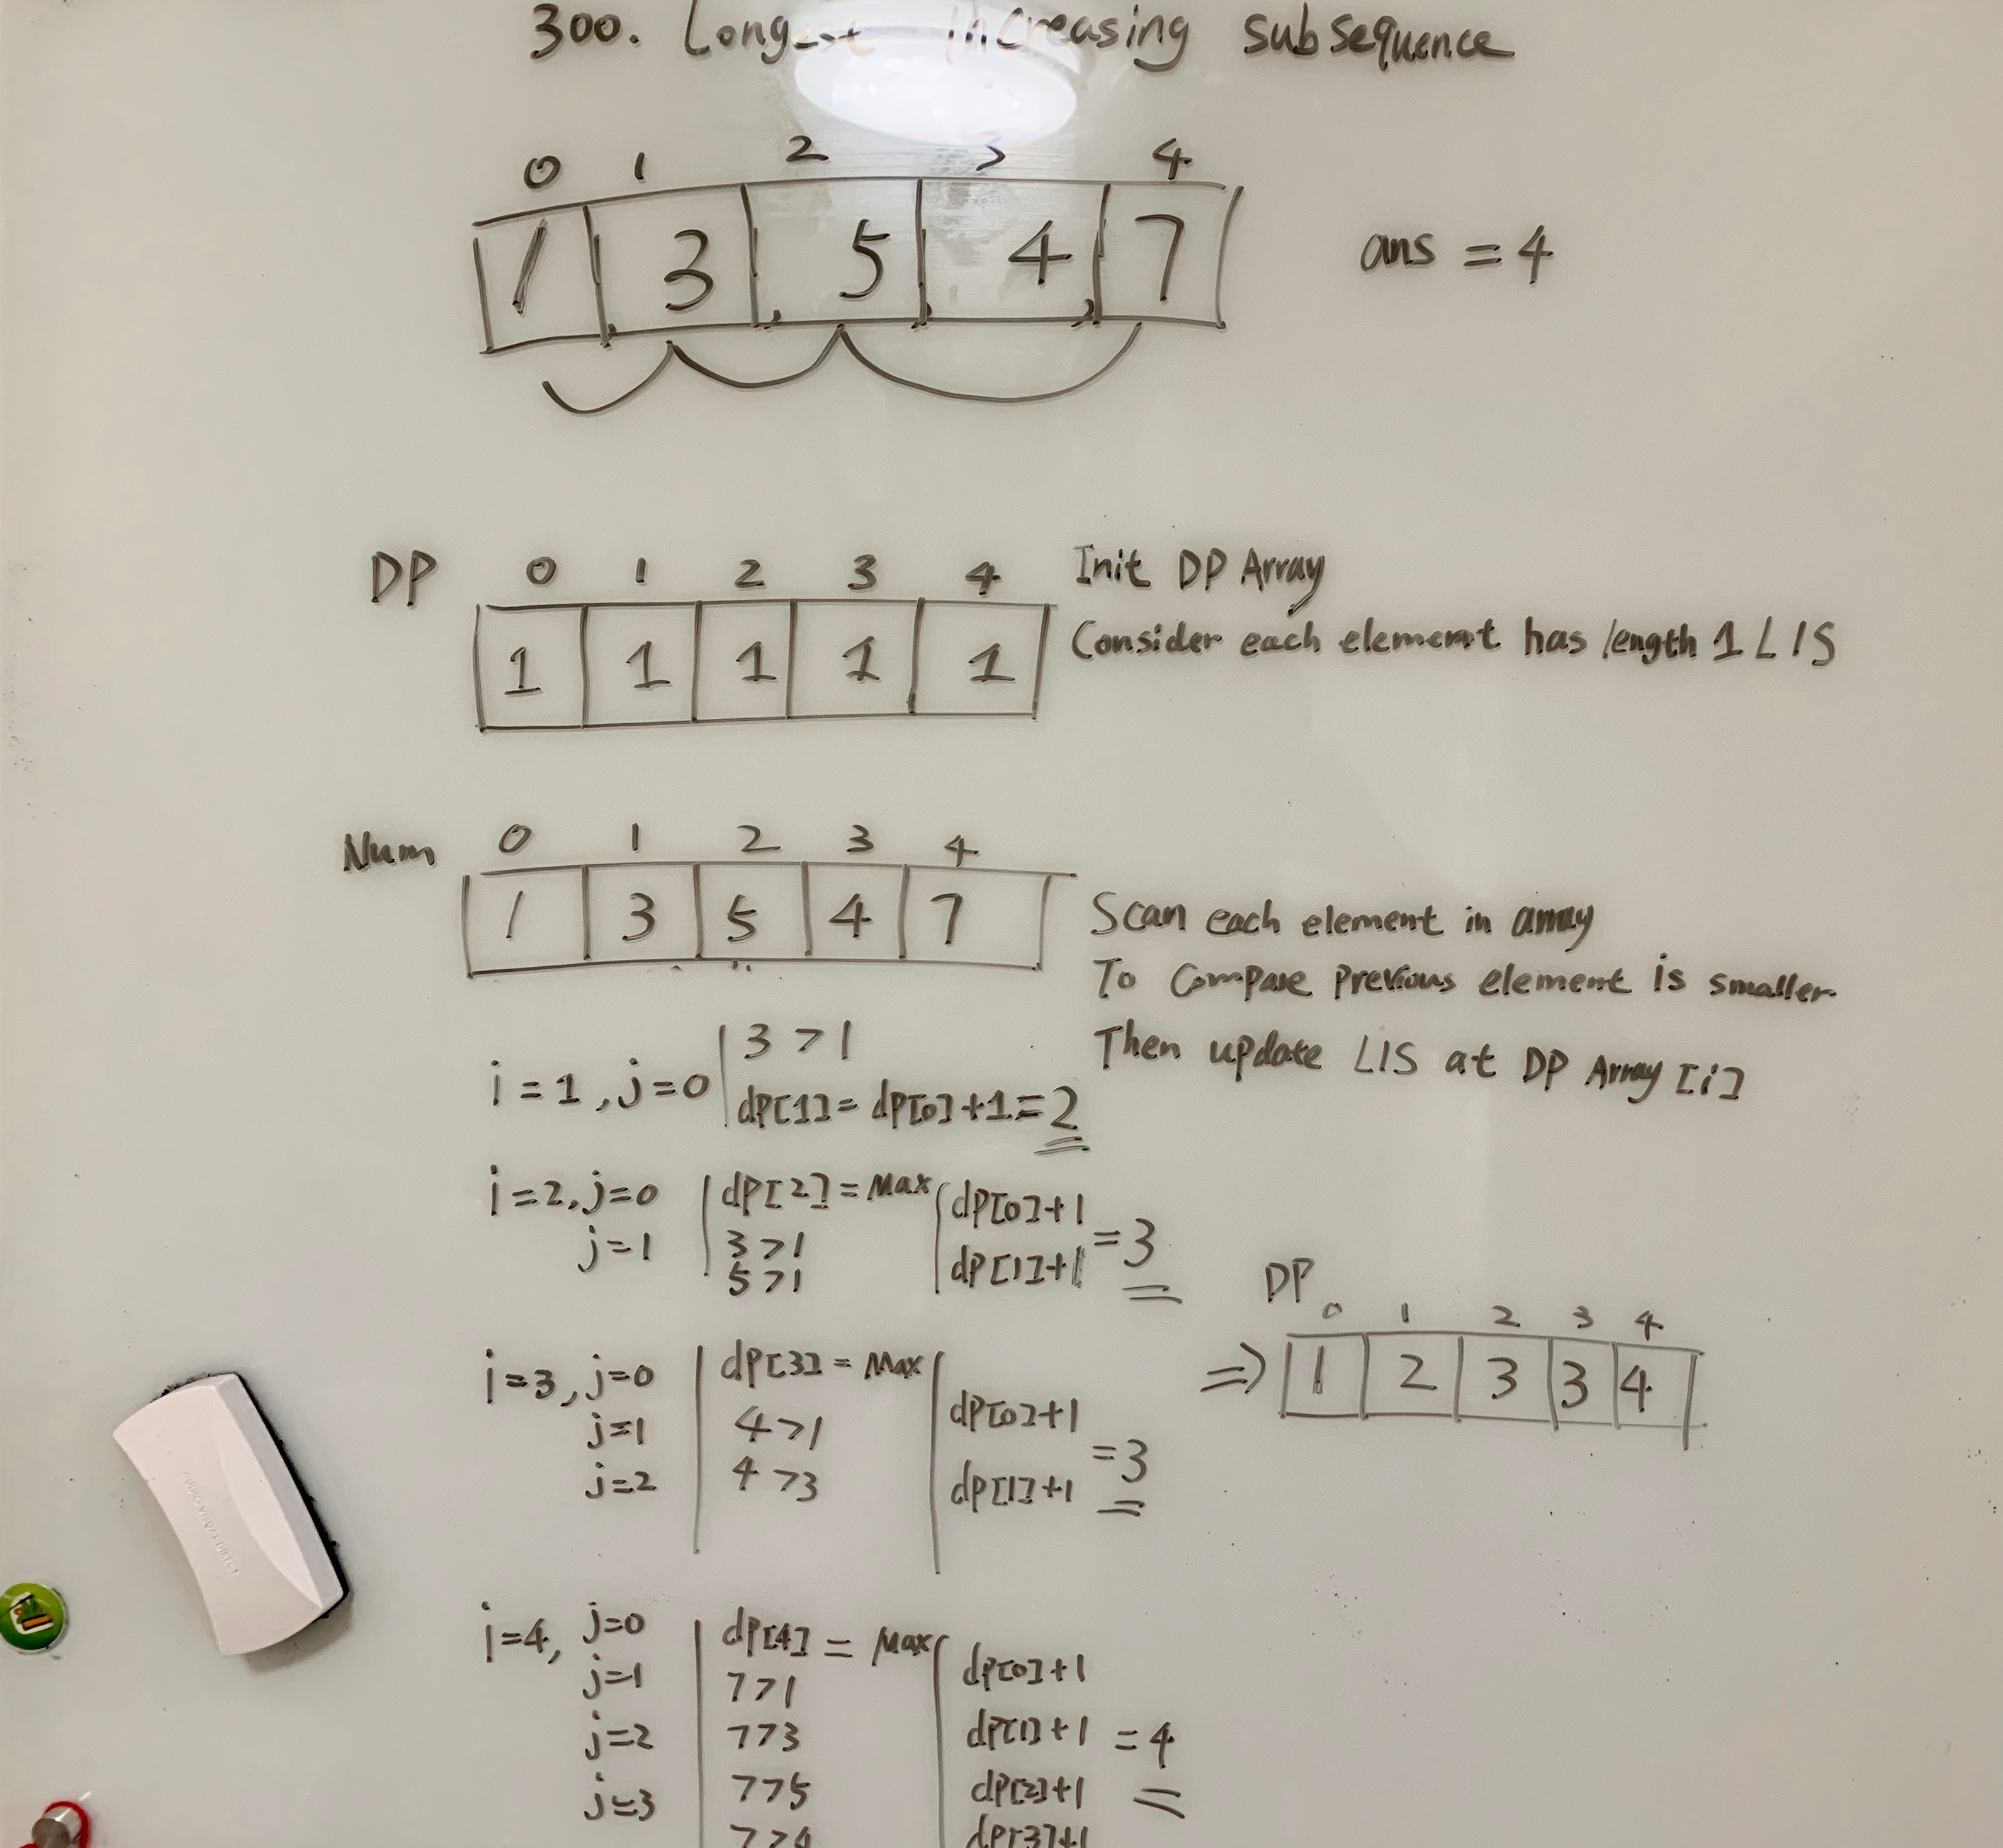 300. Longest increasing subsequence
0 1 2 3 4
1 3 5 4 7
ans = 4
DP 0 1 2 3 4
1 1 1 1 1
Init DP Array
Consider each element has length 1 LIS
Num 0 1 2 3 4
1 3 5 4 7
Scan each element in array
To Compare previous element is smaller
Then update LIS at DP Array [i]
i = 1, j=0
3 > 1
dp[1] = dp[0] + 1 = 2
i=2, j=0 dp[2] = Max dp[0]+1
j=1 3>1 dp[1]+1 = 3
5>1
i=3, j=0 dp[3] = Max
j=1 4>1 dp[0]+1
j=2 4>3 dp[1]+1 = 3
DP
0 1 2 3 4
=> 1 2 3 3 4
i=4, j=0 dp[4] = Max dp[0]+1
j=1 7>1
j=2 7>3 dp[1]+1 = 4
j=3 7>5 dp[2]+1
7>4 dp[3]+1